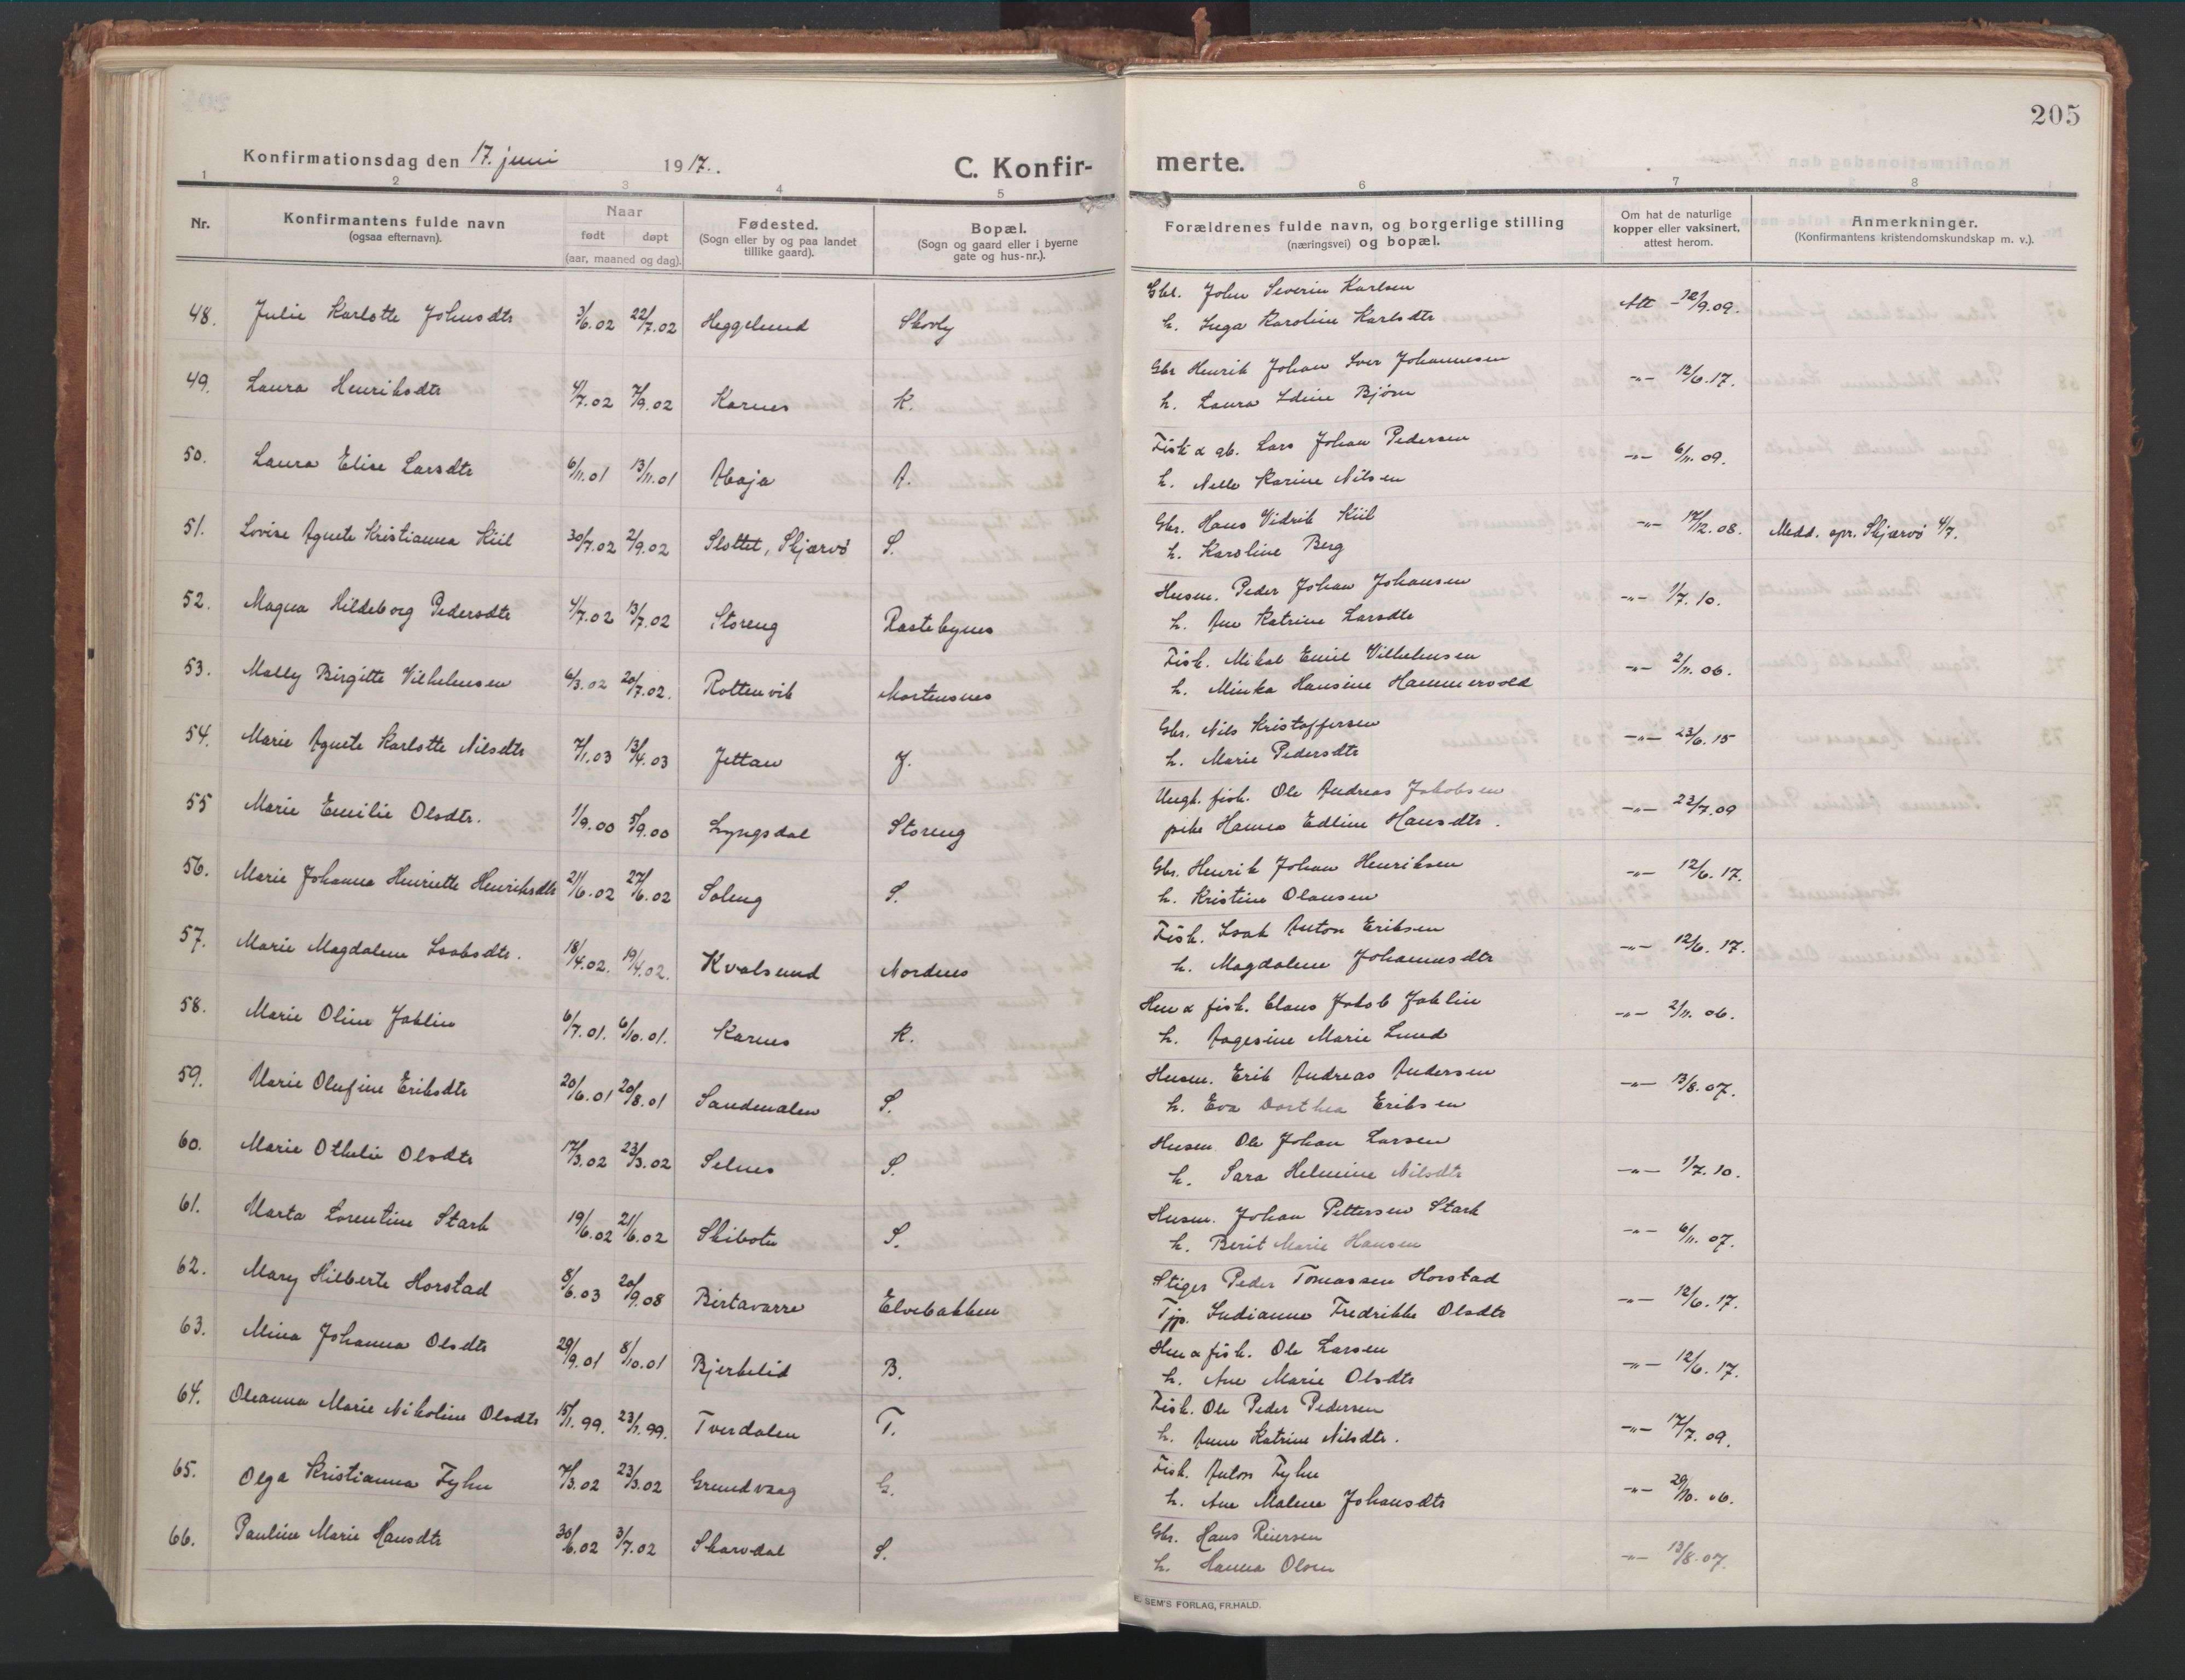 205
Konfirmationsdag den 17. juni 1917.
C. Konfir-
merte.
1 2 3 4 5 6 7 8
Nr.
Konfirmantens fulde navn
(ogsaa efternavn).
Naar
født døpt
(aar, maaned og dag).
Fødested.
(Sogn eller by og paa landet
tillike gaard).
Bopæl.
(Sogn og gaard eller i byerne
gate og hus-nr.).
Forældrenes fulde navn, og borgerlige stilling
(næringsvei) og bopæl.
Om hat de naturlige
kopper eller vaksinert,
attest herom.
Anmerkninger.
(Konfirmantens kristendomskundskap m. v.).
48. Julie Karlotte Johnsdtr 3/6.02 22/7.02 Heggelund Skovly
Gbr. John Severin Karlsen
h. Inga Karoline Karlsdtr
Att 12/9.09.
49. Laura Henriksdtr 4/7.02 7/9.02 Karnes K.
Gbr Henrik Johan Iver Johannesen
h. Laura Edine Bjørn
-"- 12/6.17.
50. Laura Elise Larsdtr 6/11.01 13/11.01 Abaja A.
Fisk & gb. Lars Johan Pedersen
h. Nelle Karine Nilsen
-"- 6/11.09.
51. Lovise Agnete Kristianna Kiil 30/7.02 2/9.02 Slottet, Skjærvø S.
Gbr. Hans Vidrik Kiil
h. Karoline Berg
-"- 17/12.08. Medd. spr. Skjærvø 4/7.
52. Magna Hildeborg Pedersdtr 4/7.02 13/7.02 Storeng Rastebynes
Husm. Peder Johan Johansen
h. Ane Katrine Larsdtr
-"- 1/7.10.
53. Mally Birgitte Vilhelmsen 6/3.02 20/7.02. Rottenvik Mortensnes
Fisk. Mikal Emil Vilhelmsen
h. Minka Hansine Hammervold
-"- 2/11.06.
54. Marie Agnete Karlotte Nilsdtr 7/1.03 13/4.03 Jettan J.
Gbr. Nils Kristoffersen
h. Marie Pedersdtr
-"- 23/6.15
55 Marie Emilie Olsdtr. 1/9.00 5/9.00 Lyngsdal Storeng
Ungk. fisk. Ole Andreas Jakobsen
pike Hanna Edline Hansdtr.
-"- 22/7.09
56. Marie Johanna Henriette Henriksdtr 21/6.02 27/6.02 Soleng S.
Gbr. Henrik Johan Henriksen
h. Kristine Olausen
-"- 12/6.17.
57. Marie Magdalene Isaksdtr. 18/4.02. 19/4.02. Kvalsund Nordnes
Fisk. Isak Anton Eriksen
h. Magdalene Johannesdtr
-"- 12/6.17.
58. Marie Oline Joklin 6/7.01. 6/10.01. Karnes K.
Hm & fisk. Claus Jakob Joklin
h. Aagesine Marie Lund
-"- 2/11.06.
59. Marie Olufine Eriksdtr 20/6.01 20/8.01 Sandenalen S.
Husm. Erik Andreas Andersen
h. Eva Dorthea Eriksen
-"- 13/8.07.
60. Marie Othelie Olsdtr 17/3.02 23/3.02 Selnes S.
Husm Ole Johan Larsen
h. Sara Helmine Nilsdtr
-"- 1/7.10.
61. Marta Lorentine Stark 19/6.02 21/6.02 Skibotn S.
Husm. Johan Pettersen Stark
h. Berit Marie Hansen
-"- 6/11.07.
62. Mary Hilberte Horstad 8/6.03 20/9.08 Birtavarre Elvebakken
Stiger Peder Tomassen Horstad
Tjp. Indianna Fredrikke Olsdtr
-"- 12/6.17.
63. Mina Johanna Olsdtr 29/9.01 8/10.01 Bjerkelid B.
Hm & fisk. Ole Larsen
h. Ane Marie Olsdtr
-"- 12/6.17.
64. Oleanna Marie Nikoline Olsdtr 15/1.99. 23/1.99. Tverdalen T.
Fisk. Ole Peder Pedersen
h. Anne Katrine Nilsdtr.
-"- 17/7.09.
65. Olga Kristianna Fyhn 7/3.02 23/3.02 Grundvaag G.
Fisk. Anton Fyhn
h. Ane Malena Johansdtr
-"- 29/10.06.
66. Pauline Marie Hansdtr 30/6.02 3/7.02 Skardal S.
Gbr. Hans Reiersen
h. Hanna Olsen
-"- 13/8.07.
E. SEM'S FORLAG, FR.HALD.